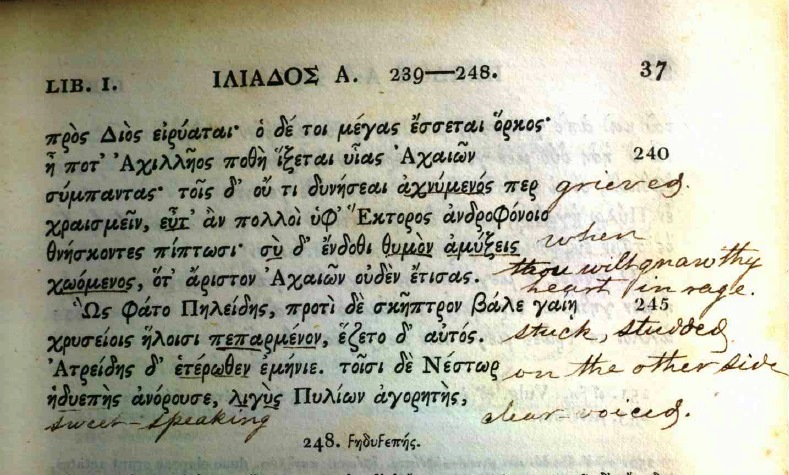 LIB. I. ΙΛΙΑΔΟΣ Α. 239—248. 37
πρὸς Διὸς εἰρύαται· ὁ δέ τοι μέγας ἔσσεται ὅρκος·
ἦ ποτ' Ἀχιλλῆος ποθὴ ἵξεται υἷας Ἀχαιῶν 240
σύμπαντας· τοῖς δ' οὔ τι δυνήσεαι ἀχνύμενός περ grieved.
χραισμεῖν, εὖτ' ἂν πολλοὶ ὑφ' Ἕκτορος ἀνδροφόνοιο
θνήσκοντες πίπτωσι· σὺ δ' ἔνδοθι θυμὸν ἀμύξεις when
χωόμενος, ὅτ' ἄριστον Ἀχαιῶν οὐδὲν ἔτισας. thou wilt gnaw thy
heart in rage.
Ὣς φάτο Πηλείδης, προτὶ δὲ σκῆπτρον βάλε γαίῃ 245
χρυσείοις ἥλοισι πεπαρμένον, ἕζετο δ' αὐτός. stuck, studded
Ἀτρείδης δ' ἑτέρωθεν ἐμήνιε. τοῖσι δὲ Νέστωρ on the other side
ἡδυεπὴς ἀνόρουσε, λιγὺς Πυλίων ἀγορητής,
sweet-speaking clear voiced.
248. ϝηδυϝεπής.